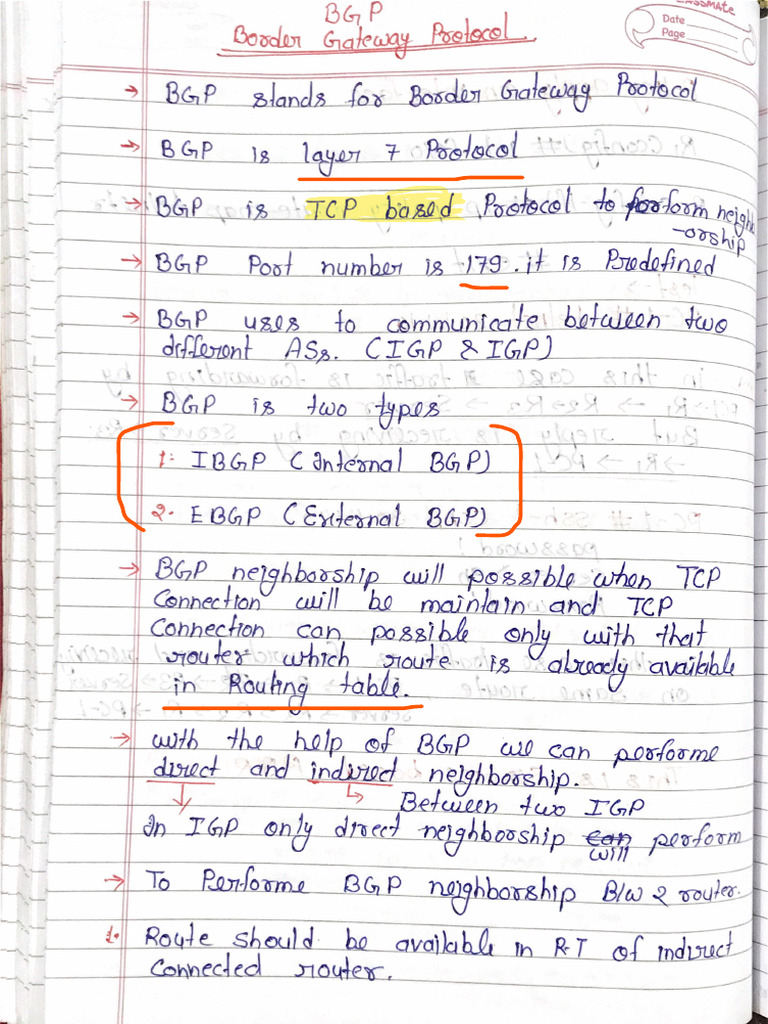 BGP
Border Gateway Protocol.
classmate
Date
Page
→ BGP stands for Border Gateway Protocol
→ BGP is layer 7 Protocol
→ BGP is TCP based Protocol to perform neighb
-orship
→ BGP Port number is 179. it is Predefined
→ BGP uses to communicate between two
different ASs. (IGP & IGP)
→ BGP is two types
1. IBGP (Internal BGP)
2. EBGP (External BGP)
→ BGP neighborship will possible when TCP
Connection will be maintain and TCP
Connection can possible only with that
router which route is already available
in Routing table.
→ with the help of BGP we can performe
direct and indirect neighborship.
↓ ↳ Between two IGP
In IGP only direct neighborship can perform
will
→ To Performe BGP neighborship B/w 2 router.
1. Route should be available in R-T of indirect
Connected router.